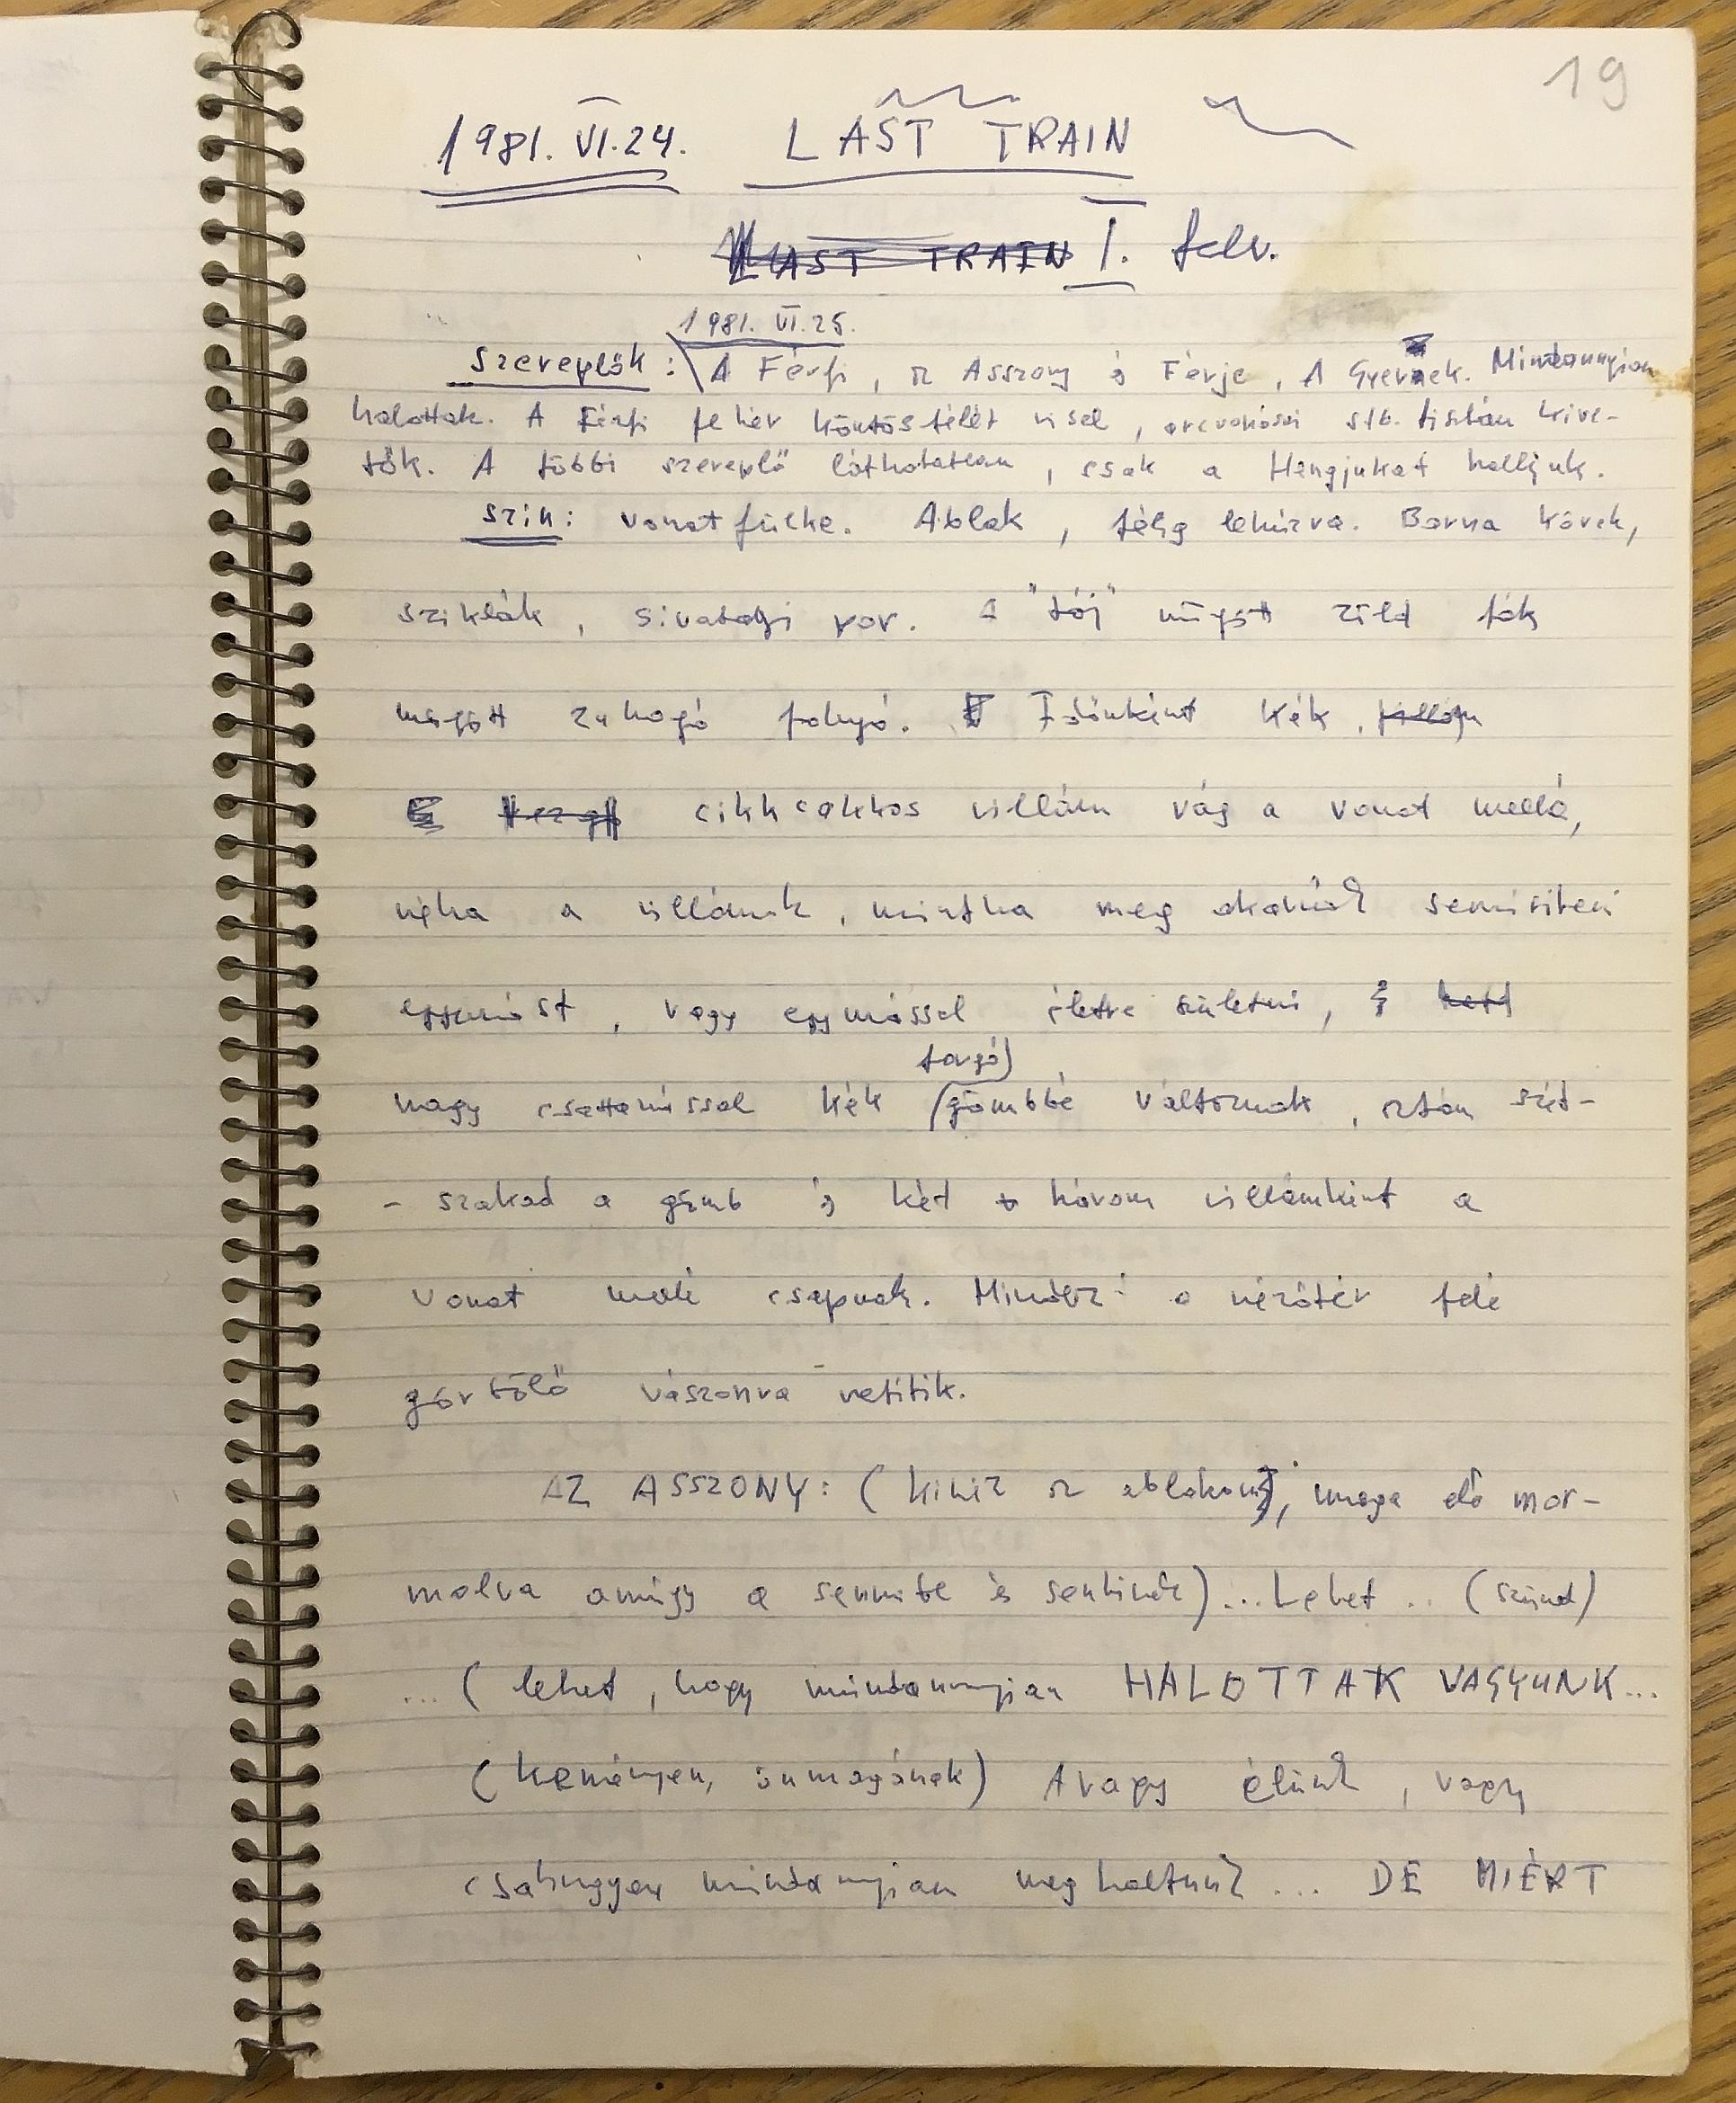 19
1981. VI. 24. LAST TRAIN
LAST TRAIN I. felv.
1981. VI. 25.
Szereplők: A Férfi, az Asszony és Férje, A Gyerek. Mindannyian
halottak. A Férfi fehér köntösfélét visel, arcvonásai stb. tisztán kive-
tők. A többi szereplő láthatatlan, csak a Hangjukat halljuk.
Szín: vonatfülke. Ablak, félig lehúzva. Barna kövek,
sziklák, sivatagi por. A "táj" mögött zöld fák
mögött zuhogó folyó. Időnként kék villám
cikkcakkos villám vág a vonat mellé,
néha a villámok, mintha meg akarnák semmisíteni
egymást, vagy egymással életre születni,
nagy csattanással kék (forgó) gömbbé változnak, aztán szét-
- szakad a gömb és két három villámként a
vonat mellé csapnak. Mindezt a nézőtér felé
gördülő vászonra vetítik.
AZ ASSZONY: (kinéz az ablakon, maga elé mor-
molva amúgy a semmibe és senkinek) ... Lehet .. (szünet)
... ( lehet, hogy mindannyian HALOTTAK VAGYUNK...
(keményen, önmagának) Avagy élünk, vagy
csakugyan mindannyian meghaltunk ... DE MIÉRT